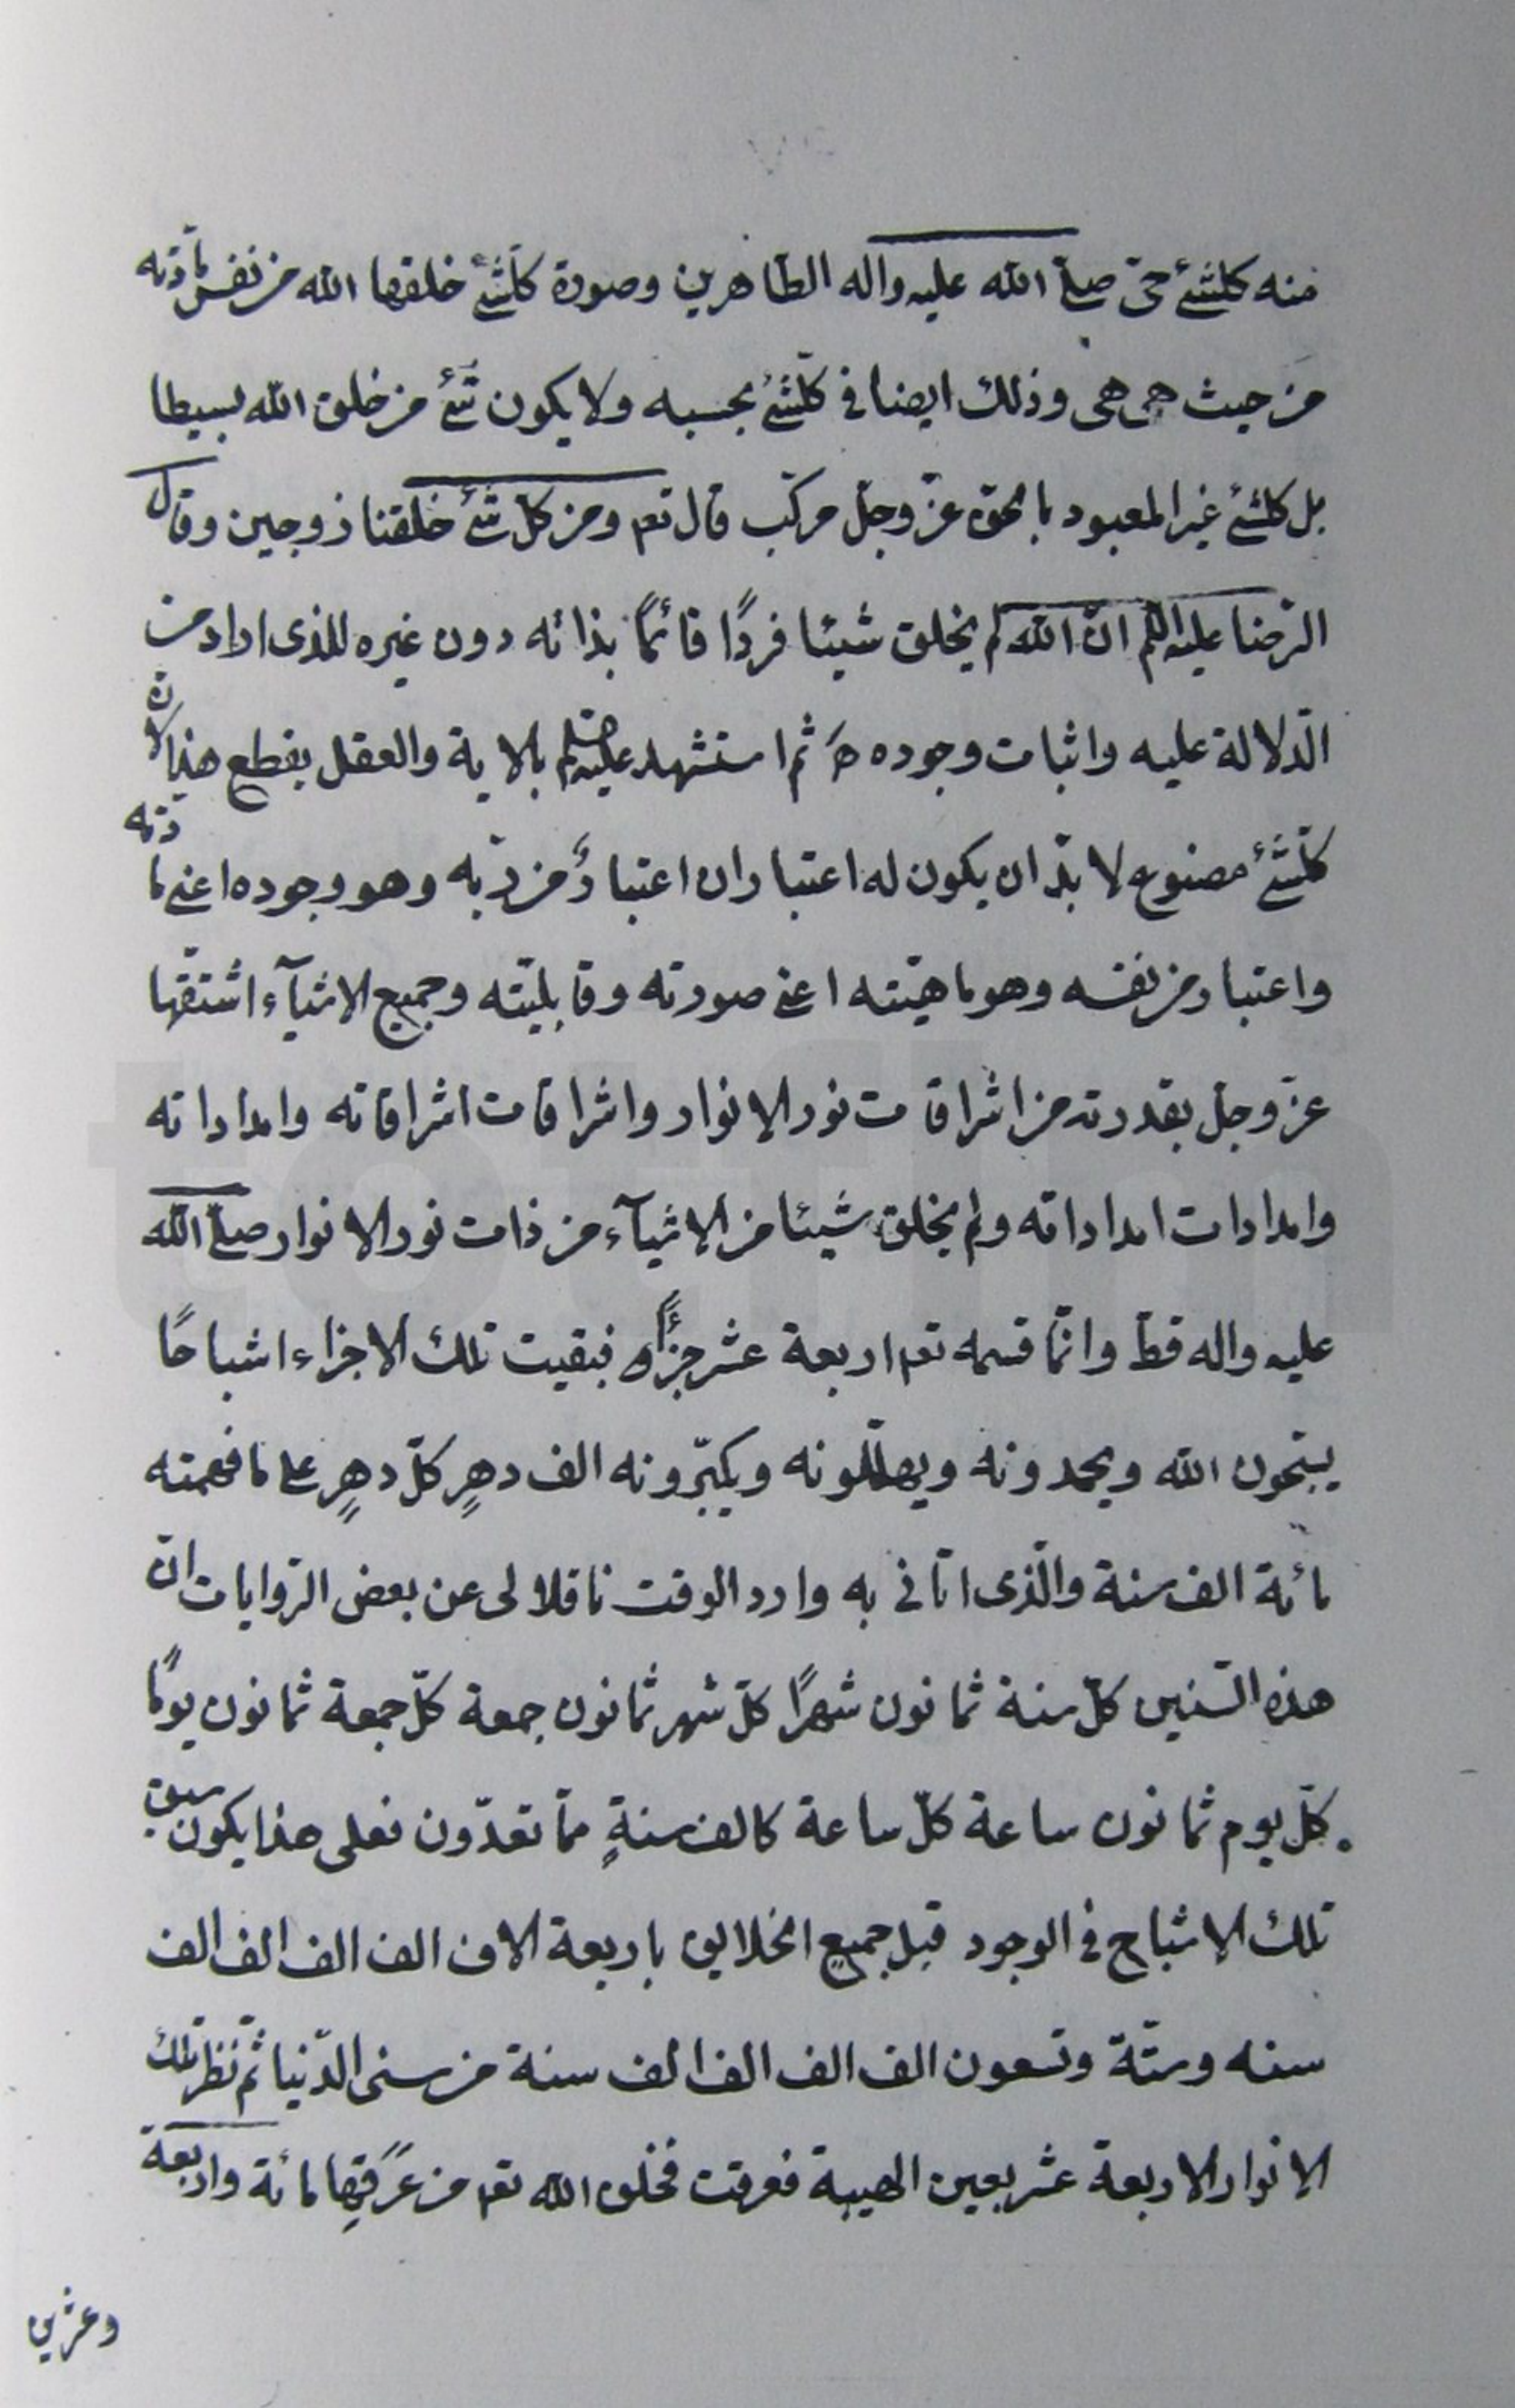 منه كلشئ حيّ صلّى الله عليه واله الطاهرين وصورة كلّشئ خلقها الله من نفس مادّته
من حيث هى هى وذلك ايضا فى كلّشئ بحسبه ولا يكون شئ من خلق الله بسيطا
بل كلشئ غير المعبود بالحق عزّ وجلّ مركّب قال تعه ومن كلّ شئ خلقنا زوجين وقال
الرّضا عليه السلم انّ الله لم يخلق شيئا فردًا قائمًا بذاته دون غيره للذى اراد من
الدّلالة عليه واثبات وجوده ثم استشهد عليه السلم بالاية والعقل يقطع هذا لانّ
كلّشئ مصنوع لا بدّ ان يكون له اعتباران اعتبارٌ من ربّه وهو وجوده اعنى مادّته
واعتبار من نفسه وهو ماهيّته اعنى صورته وقابليّته وجميع الاشيآء اشتقّها
عزّ وجلّ بقدرته من اشراقات نور الانوار واشراقات اشراقاته وامداداته
وامدادات امداداته ولم يخلق شيئا من الاشيآء من ذات نور الانوار صلّى الله
عليه واله قطّ وانّما قسمه تعه اربعة عشر جزءًا فبقيت تلك الاجزاء اشباحًا
يسبّحون الله ويحمدونه ويهلّلونه ويكبّرونه الف دهرٍ كلّ دهرٍ على ما فهمته
مائة الف سنة والّذى اتانى به وارد الوقت ناقلا لى عن بعض الرّوايات انّ
هذه السّنين كلّ سنة ثمانون شهرًا كلّ شهر ثمانون جمعة كلّ جمعة ثمانون يومًا
كلّ يوم ثمانون ساعة كلّ ساعة كالف سنةٍ ممّا تعدّون فعلى هذا يكون سبق
تلك الاشباح فى الوجود قبل جميع الخلايق باربعة الاف الف الف الف الف
سنه وستّة وتسعون الف الف الف الف سنة من سنى الدّنيا ثمّ نظرت تلك
الانوار الاربعة عشر بعين الهيبة فعرقت فخلق الله تعه من عَرَقِها مائة واربعة
وعشرين